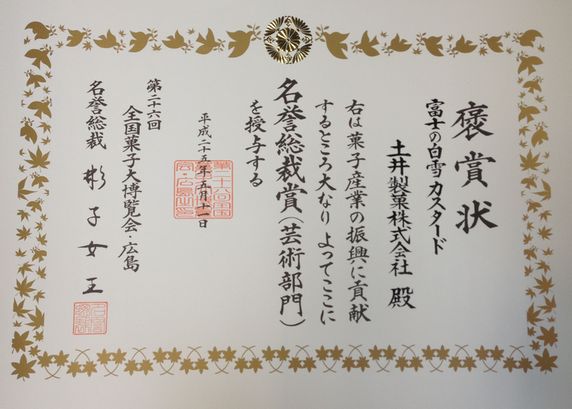 褒賞状
富士の白雪 カスタード
土井製菓株式会社 殿
右は菓子産業の振興に貢献
するところ大なり よってここに
名誉総裁賞(芸術部門)
を授与する
平成二十五年五月十一日
第二十六回
全国菓子大博覧会・広島
名誉総裁 彬子女王